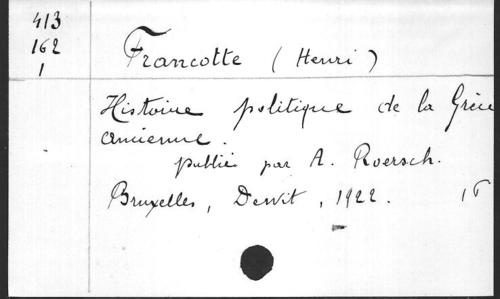 413
162
1
Francotte (Henri)
Histoire politique de la Grèce
ancienne.
publié par A. Roersch.
Bruxelles, Dewit, 1922.